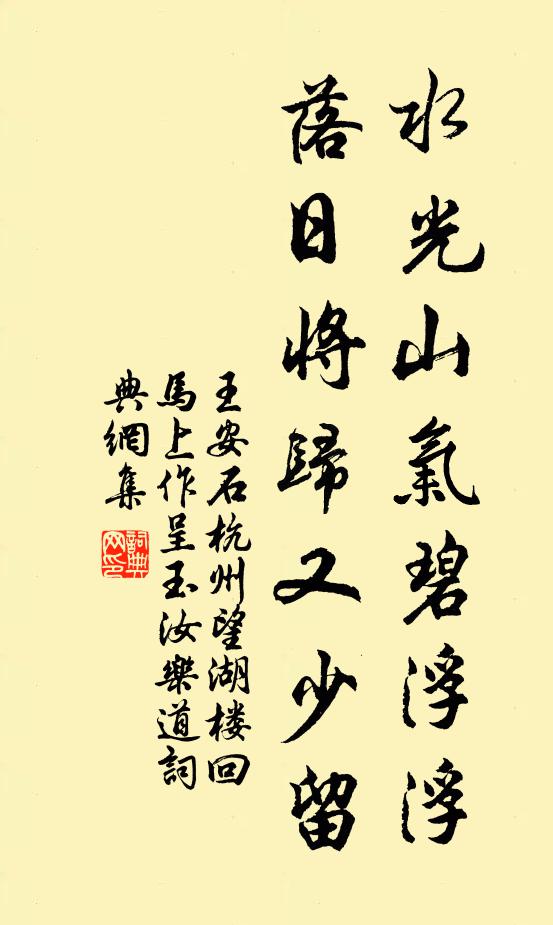 水光山氣碧浮浮
落日將歸又少留
王安石杭州望湖楼回
馬上作呈玉汝樂道詞
典網集
詞典
网印